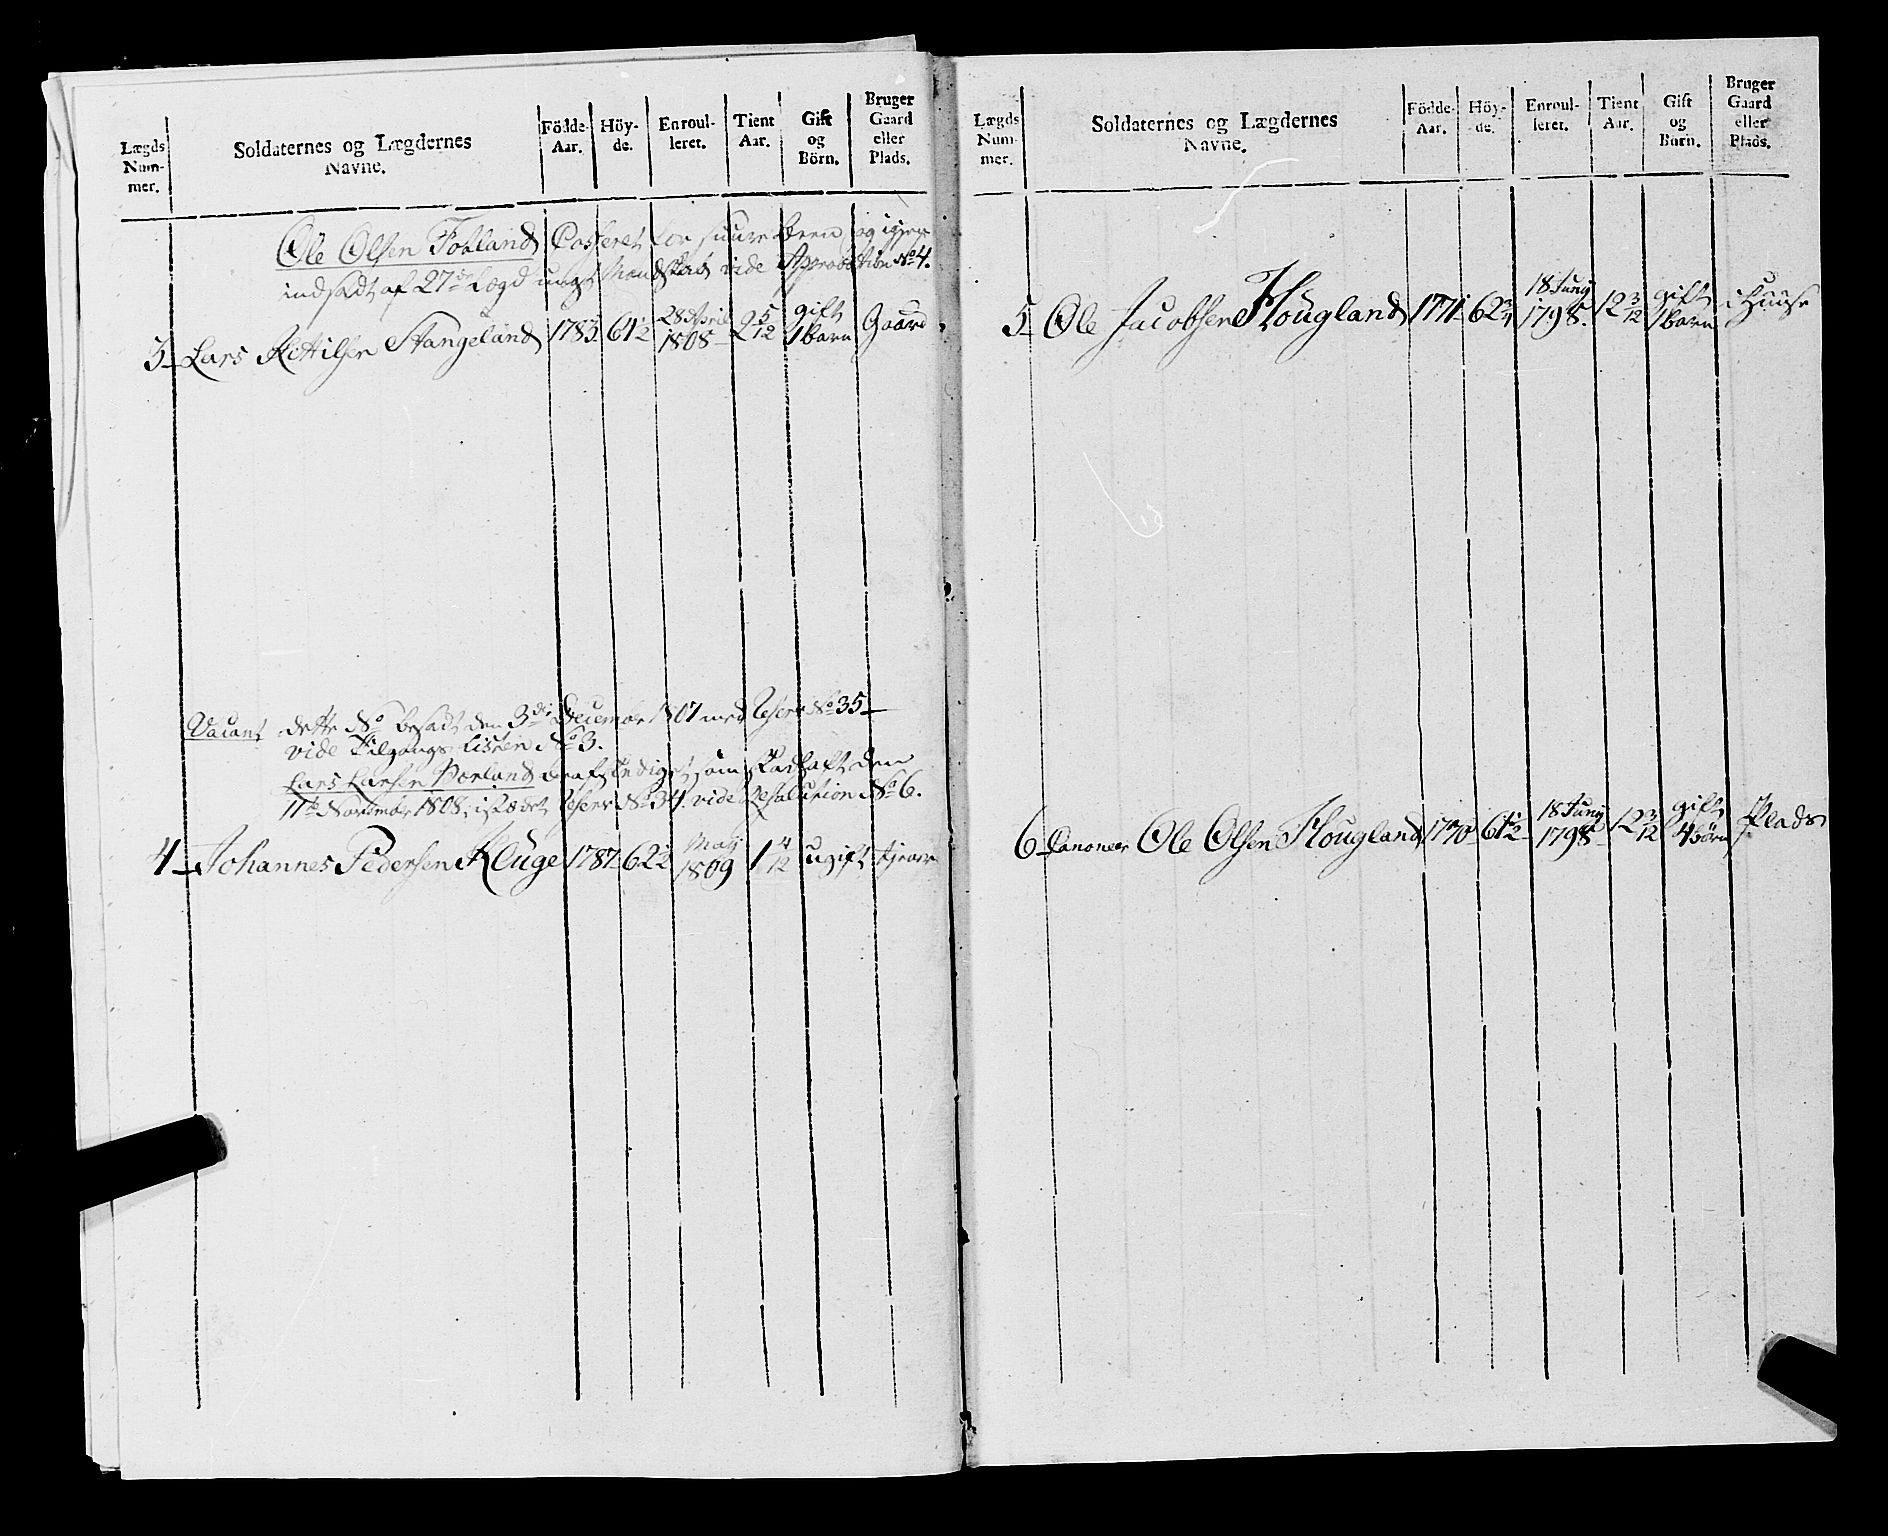 Lægds Num- mer.
Soldaternes og Lægdernes Navne.
Födde- Aar.
Höy- de.
Enroul- leret.
Tient Aar.
Gift og Börn.
Bruger Gaard eller Plads.
Ole Olsen Folland Casseret for suure Been og igjen
indsadt af 27de Lægd ungt Mandskab vide Approbation No 4.
3 Lars Kittilsen Stangeland 1783 61½ 28 April 1808 2 5/12 gift 1 barn Gaard
Vacant dette No besadt den 3de December 1807 med Reserv No 35
vide Tilgangs Listen No 3.
Lars Larsen Norland er afskediget som skadhaft den
11te Novembr 1808, istædet Reserv No 34. vide Resolution No 6.
4 Johannes Pedersen Kluge 1787 62½ Maij 1809 1 4/12 ugift tjener
Lægds Num- mer.
Soldaternes og Lægdernes Navne.
Födde- Aar.
Höy- de.
Enroul- leret.
Tient Aar.
Gift og Börn.
Bruger Gaard eller Plads.
5 Ole Jacobsen Hougland 1771 62¾ 18 Juny 1798 12 3/12 gift 1 barn i Huuse
6 Canoneer Ole Olsen Hougland 1770 61½ 18 Juny 1798 12 3/12 gift 4 börn Plads